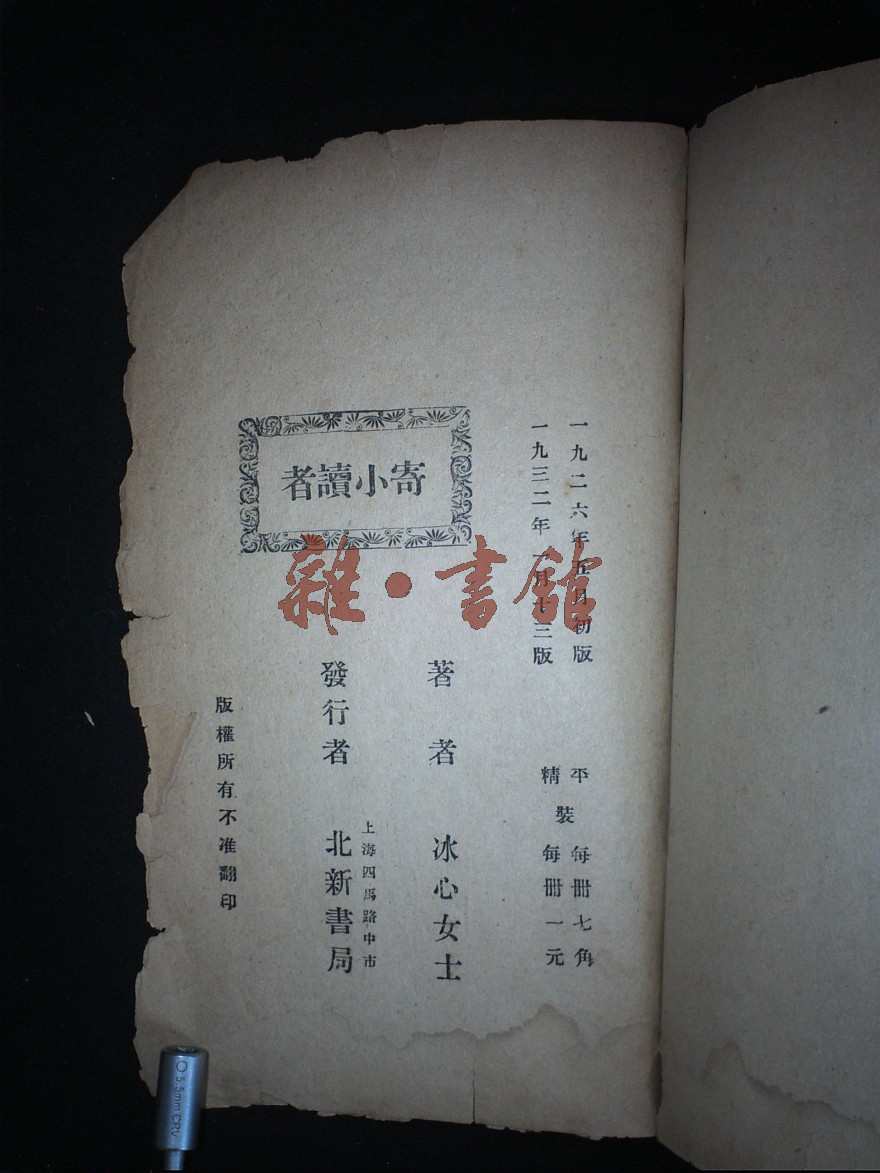 一九二六年五月初版
一九三二年一月十三版
平裝每冊七角
精裝每冊一元
寄小讀者
著者 冰心女士
發行者 上海四馬路中市 北新書局
版權所有不准翻印
雜·書館
5.5mm CRV